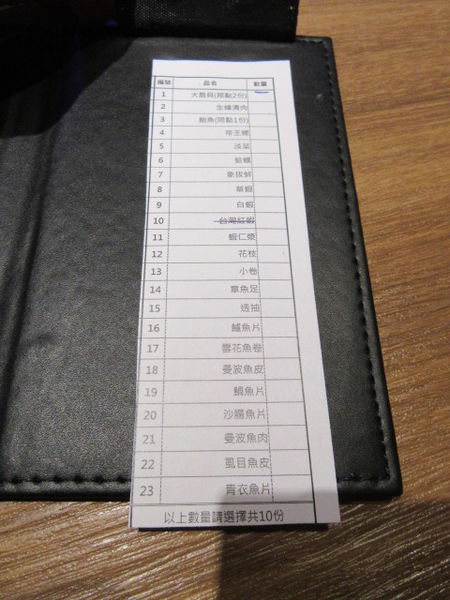 編號 品名 數量
1 大扇貝(限點2份)
2 生蠔清肉
3 鮑魚(限點1份)
4 帝王蟹
5 淡菜
6 蛤蠣
7 象拔蚌
8 草蝦
9 白蝦
10 台灣紅蝦
11 蝦仁漿
12 花枝
13 小卷
14 章魚足
15 透抽
16 鱸魚片
17 雪花魚卷
18 曼波魚皮
19 鯛魚片
20 沙腸魚片
21 曼波魚肉
22 虱目魚皮
23 青衣魚片
以上數量請選擇共10份